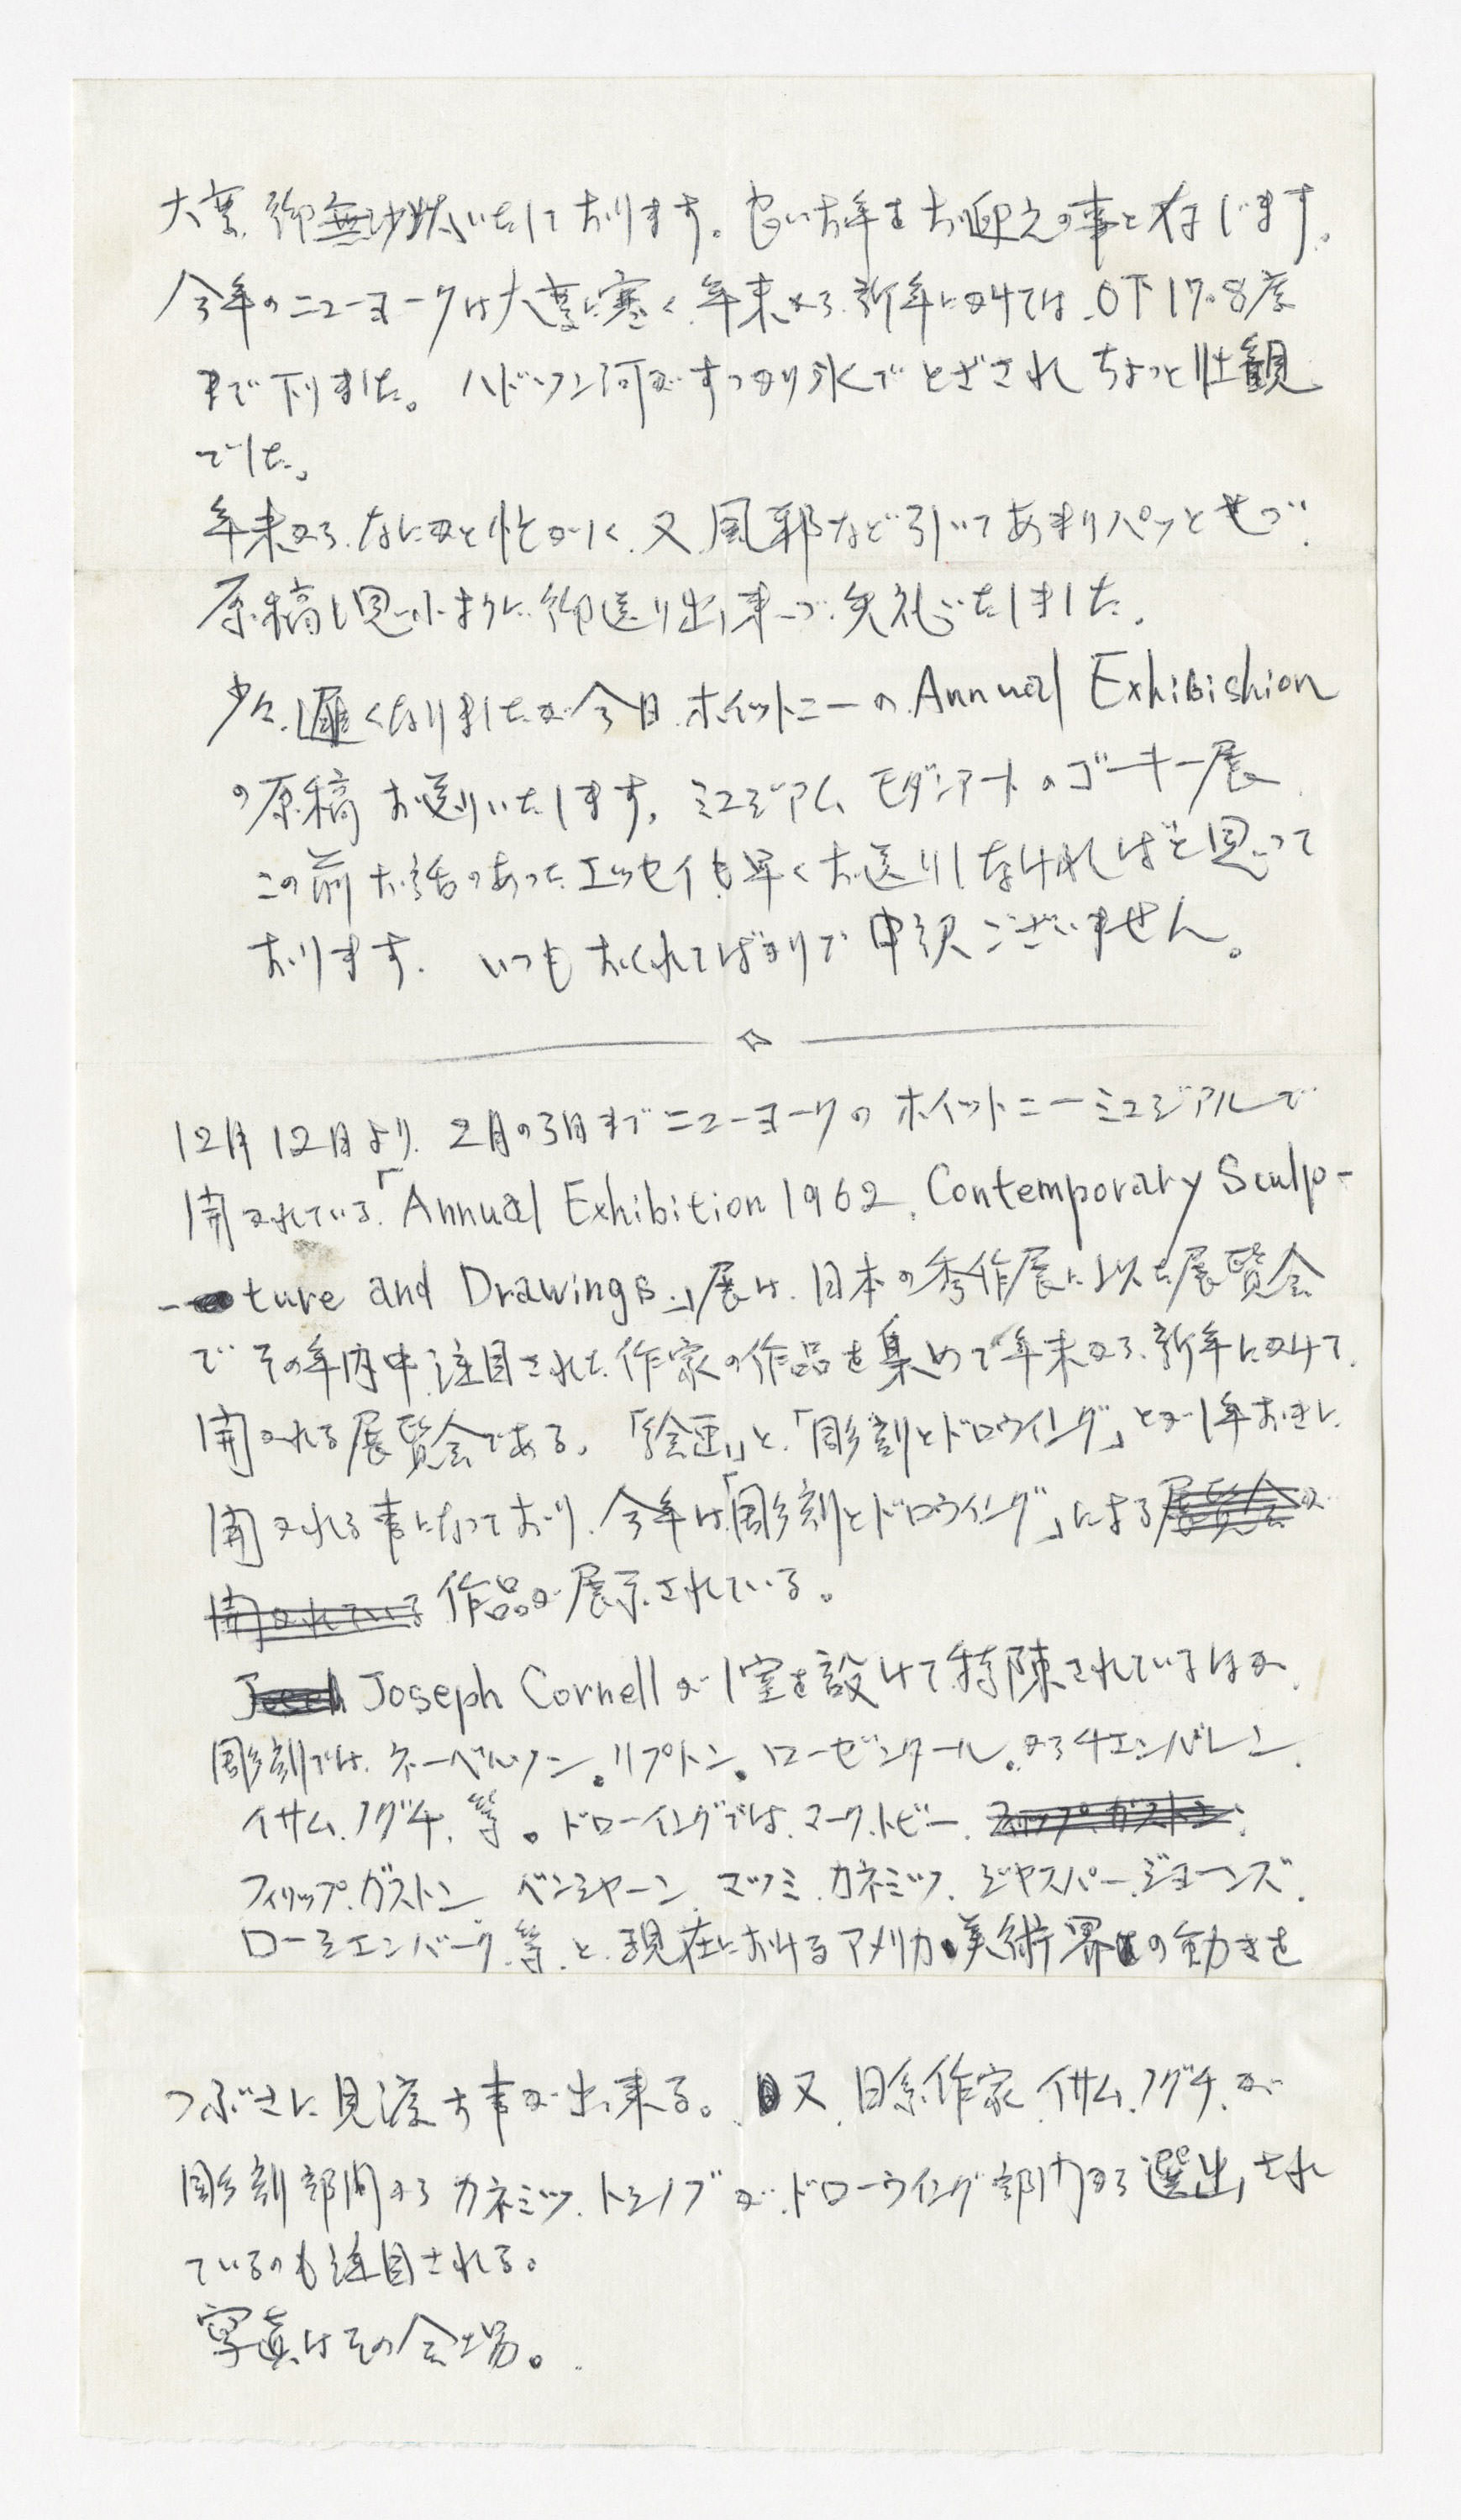 大変御無沙汰いたしております。良いお年をお迎えの事と存じます。
今年のニューヨークは大変に寒く、年末から新年にかけては、0下17・8度
まで下りました。ハドソン河がすっかり氷でとざされちょっと壮観
でした。
年末から、なにかと忙がしく、又、風邪など引いてあまりパッとせづ、
原稿も思ふように御送り出来づ、失礼いたしました。
少々遅くなりましたが今日、ホイットニーの Annual Exhibishion
の原稿お送りいたします。ミュジアム モダンアートのゴーキー展、
この前お話のあったエッセイも早くお送りしなければと思って
おります。いつもおくれてばかりで申訳ございません。
12月12日より、2月の3日までニューヨークのホイットニーミュジアムで
開かれている、「Annual Exhibition 1962, Contemporary Sculp-
-ture and Drawings.」展は、日本の秀作展に以た展覧会
でその年内中、注目された作家の作品を集めて年末から、新年にかけて、
開かれる展覧会である。「絵画」と、「彫刻とドロウイング」とが1年おきに、
開かれる事になっており、今年は「彫刻とドロウイング」による展覧会が
開かれている 作品が展示されている。
Joseph Cornell が1室を設けて特陳されているほか、
彫刻では、ネーベルソン。リプトン。ローゼンタール。かろチエンバレン、
イサム、ノグチ、等。ドローイングでは、マーク、トビー、フィリップ、ガストン、
フィリップ、ガストン ベンシャーン、マツミ、カネミツ、ジャスパー、ジョーンズ、
ローシエンバーグ、等、と、現在におけるアメリカ美術界の動きを
つぶさに見渡す事が出来る。又、日系作家、イサム、ノグチ、が
彫刻部門から カネミツ、トシノブが、ドローウイング部門から選出され
ているのも注目される。
写真はその会場。